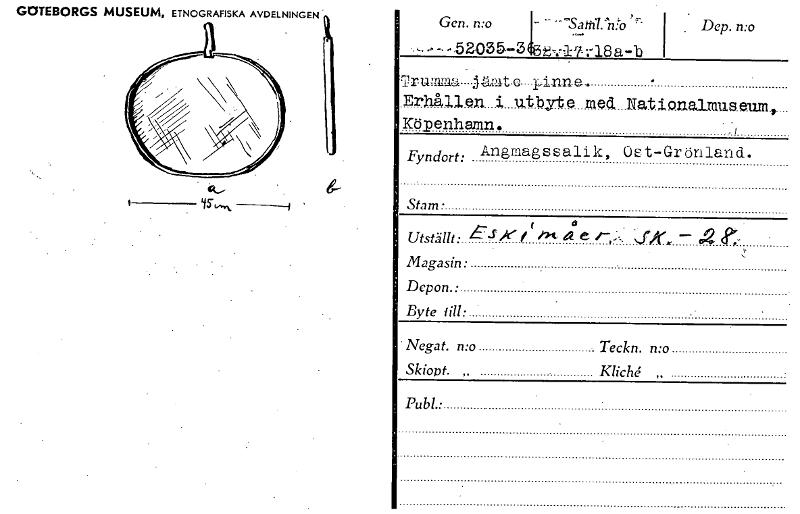 GÖTEBORGS MUSEUM, ETNOGRAFISKA AVDELNINGEN
a
b
45 cm
Gen. n:o
Saml. n:o
Dep. n:o
52035-36
32.17.18a-b
Trumma jämte pinne.
Erhållen i utbyte med Nationalmuseum,
Köpenhamn.
Fyndort: Angmagssalik, Ost-Grönland.
Stam:
Utställt: Eskimåer. SK.-28.
Magasin:
Depon.:
Byte till:
Negat. n:o Teckn. n:o
Skiopt. „ Kliché „
Publ.: